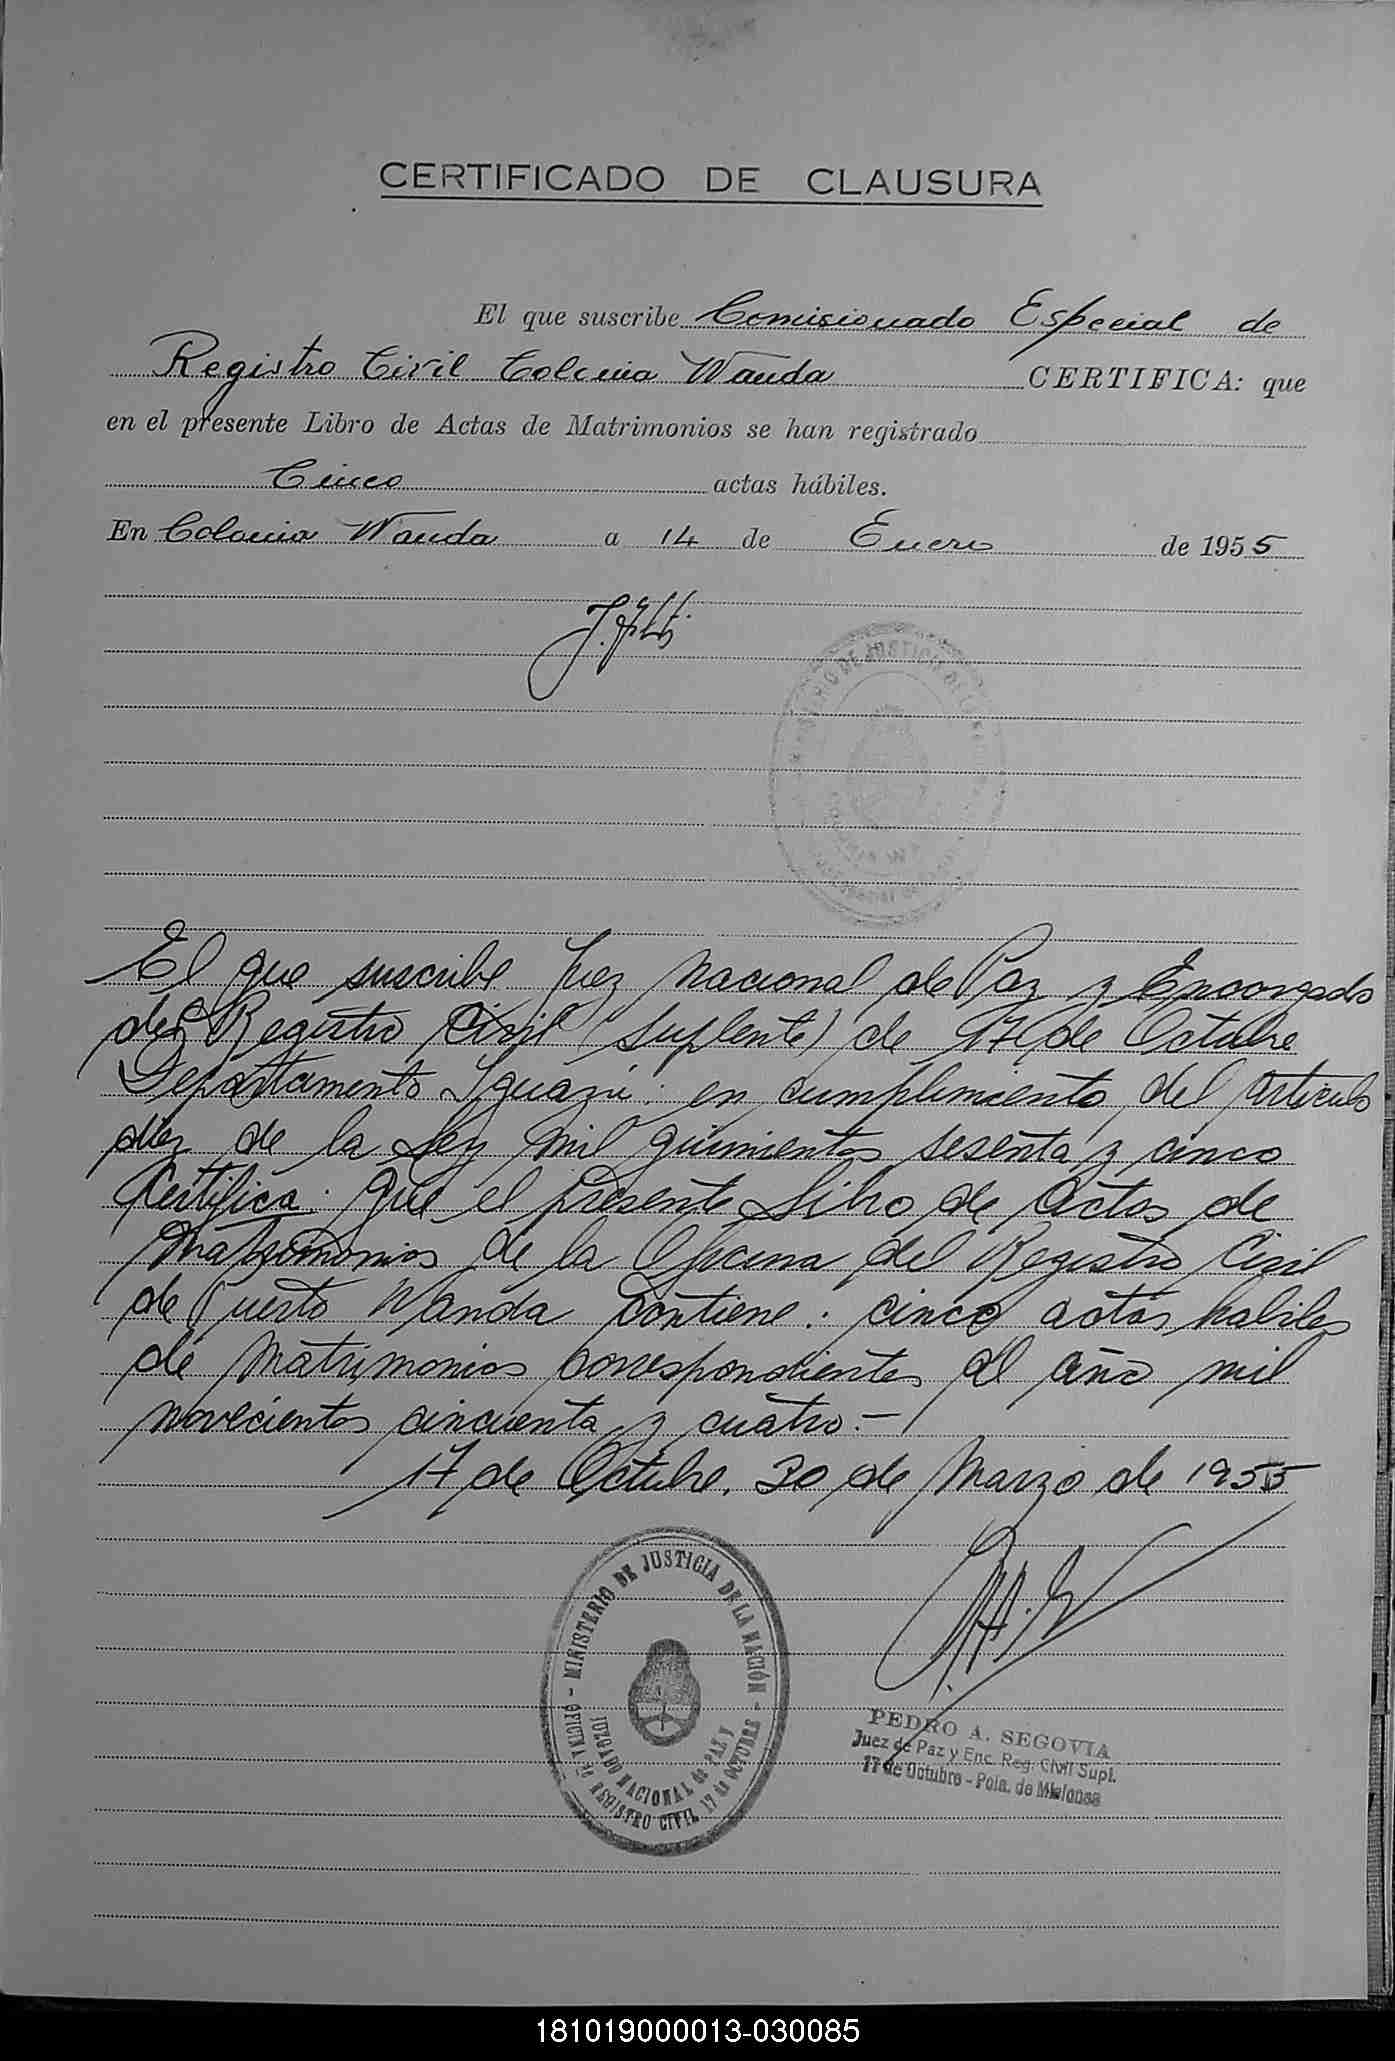 CERTIFICADO DE CLAUSURA
El que suscribe Comisionado Especial de
Registro Civil Colonia Wanda CERTIFICA: que
en el presente Libro de Actas de Matrimonios se han registrado
Cinco actas hábiles.
En Colonia Wanda a 14 de Enero de 1955
El que suscribe Juez Nacional de Paz y Encargado
del Registro Civil (Suplente) de 17 de Octubre
Departamento Iguazú: en cumplimiento del artículo
diez de la Ley mil quinientos sesenta y cinco
Certifica: que el presente Libro de Actas de
Matrimonios de la Oficina del Registro Civil
de Puerto Wanda contiene: cinco actas habiles
de Matrimonios correspondientes al año mil
novecientos cincuenta y cuatro.-
17 de Octubre, 30 de Marzo de 1955
MINISTERIO DE JUSTICIA DE LA NACIÓN
JUZGADO NACIONAL de PAZ y
OFICINA de REGISTRO CIVIL 17 de OCTUBRE
PEDRO A. SEGOVIA
Juez de Paz y Enc. Reg. Civil Supl.
17 de Octubre - Pcia. de Misiones
181019000013-030085